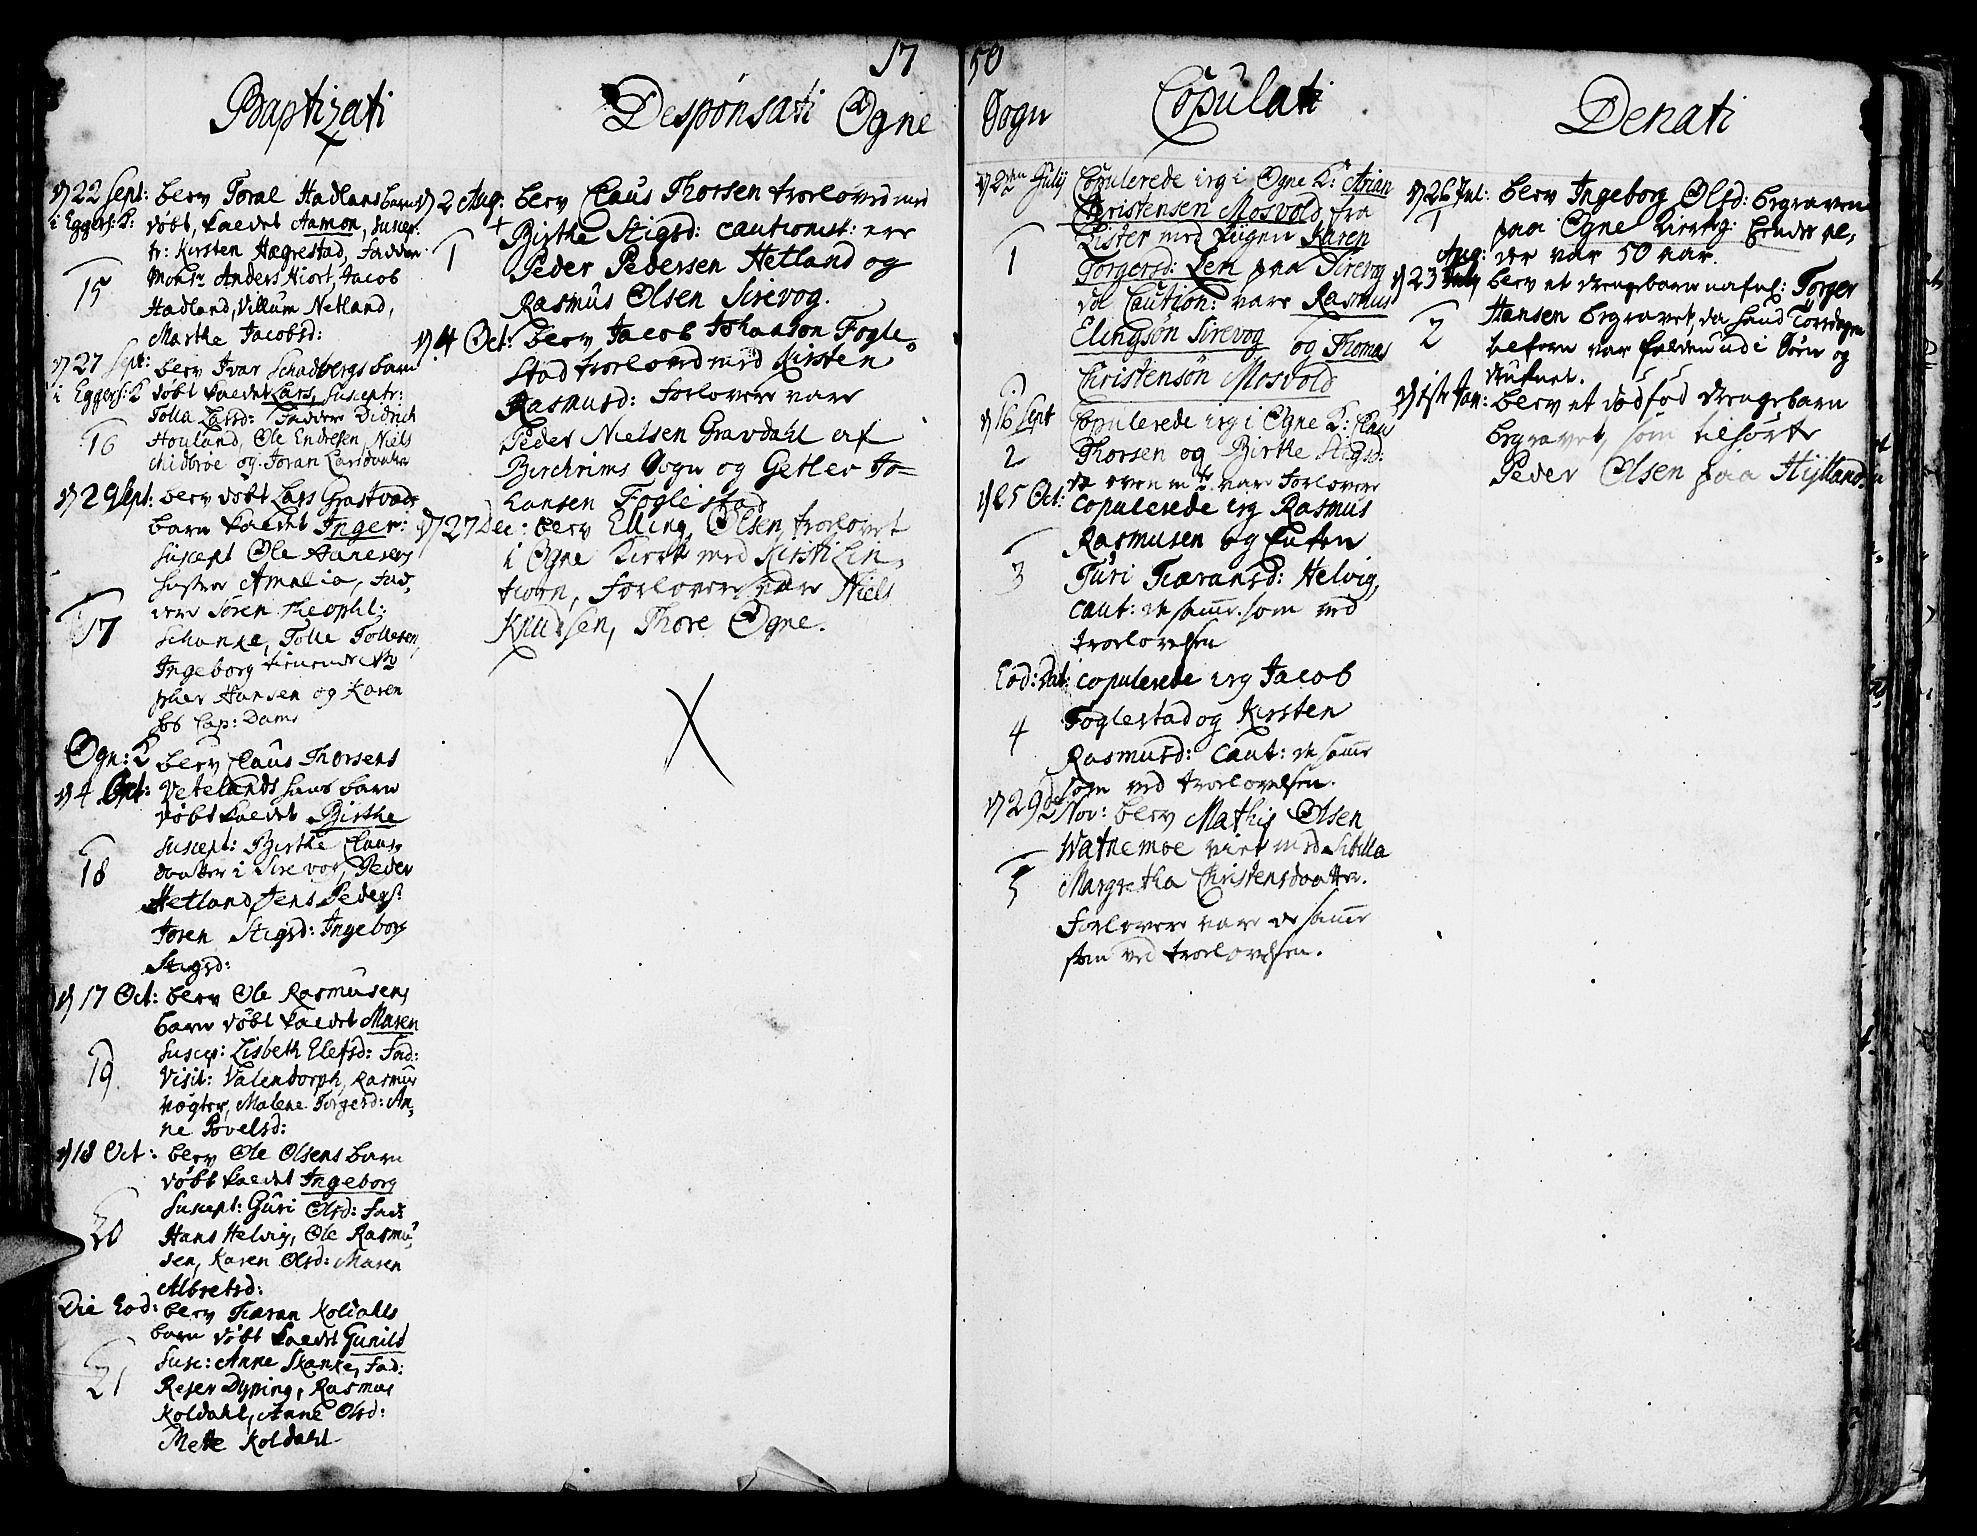 17 50
Baptizati
d 22 Sept: blev Toral Hadlands barn
i Eggers: K: døbt, kaldet Aamon, suscep:
tr: Kirsten Hægrestad, Faddere
15 Monsr Anders Hiort, Jacob
Hadland, Villum Netland,
Marthe Jacobsd:
d 27 Sept: blev Ivar Schadbergs barn
i Eggers: K døbt kaldet Lars, susceptr:
Tolla Larsd: Faddere Didrich
16 Houland, Ole Endresen, Niels
Midbrøe og Joran Larsdaatter
d 29 Sept: blev døbt Lars Grastveds
barn kaldet Inger:
suscept Ole
Amalia, Fad,
dere Søren Theophl:
17 Schanke, Tolle Tollesen,
Ingeborg tienende
pher Hansen og Karen
hos Cap: Dams
Ogn: K blev Claus Thorsens
d 4 Oct: Vetelands barn
døbt kaldet Birthe
suscept: Birthe Claus,
18 daatter i Sirevog, Peder
Hetland, Jens Peders:
Joren Stigsd: Ingeborg
Stigsd:
d 17 Oct: blev Ole Rasmusens
barn døbt kaldet Maren
Suscep: Lisbeth Elefsd: Fad:
19 Visit: Valendorph, Rasmus
Vogter, Malene Torgersd: An,
ne Povelsd:
d 18 Oct: blev Ole Olsens barn
døbt kaldet Ingeborg
Suscept: Guri Olsd: Fad:
20 Hans Helvig, Ole Rasmu,
sen, Karen Olsd: Maren
Albretsd:
Die Eod: blev Tiæran Koldahls
barn døbt kaldet Gunild
Susc: Anne Skanke, Fad:
21 Reier Dyping, Rasmus
Koldahl, Anne Olsd:
Mette Koldahl
Desponsati Ogne
d 2 Aug: blev Claus Thorsen troloved med
1 Birthe Stigsd: cautionist: ere
Peder Pedersen Hetland og
Rasmus Olsen Sirevog.
d 4 Oct: blev Jacob Johanson Fogle,
stad trolovd med Kirsten
Rasmusd: Forlovere vare
Peder Nielsen Gravdahl af
Birchrims Sogn og Getlev Jo=
hansen Foglestad
d 27 Dec: blev Elling Olsen trolovet
i Ogne Kirke med Kirsti
Forlovere vare Niels
Knudsen, Thore Ogne.
Sogn Copulati
d 2den July Copulerede ieg i Ogne K: Arian
Christensen Mosvold fra
1 Lister med Pigen Karen
Torgersd: Lem paa Sirevog
Caution: vare Rasmus
Elingsøn Sirevog og Thomas
Christensøn Mosvold
d 16 Sept Copulerede ieg i Ogne K: Claus
2 Thorsen og Birthe Stigsd:
de ovenmte var Forlovere
d 25 Oct: copulerede ieg Rasmus
Rasmusen og Enken
3 Turi Tiæransd: Helvig,
caut: de samme som ved
trolovelsen
Eod: Dat: copulerede ieg Jacob
4 Foglestad og Kirsten
Rasmusd: Caut: de samme
som ved trolovelsen.
d 29de Nov: blev Mathis Olsen
Watnemoe viet med Sibilla
5 Margretha Christensdaatter.
Forlovere vare de samme
som ved trolovelsen.
Denati
d 26 Jul: blev Ingeborg Olsd: begraven
1 paa Ogne Kirkeg: hendes al,
der var 50 aar.
Aug:
d 23 July blev et drengebarn nafnl: Torger
Hansen begravet, da hand Torsdagen
2 beforn var falden ud i Søen og
druknet.
blev et dødfød drengebarn
begravet, som tilhørte
Peder Olsen paa Hylland.